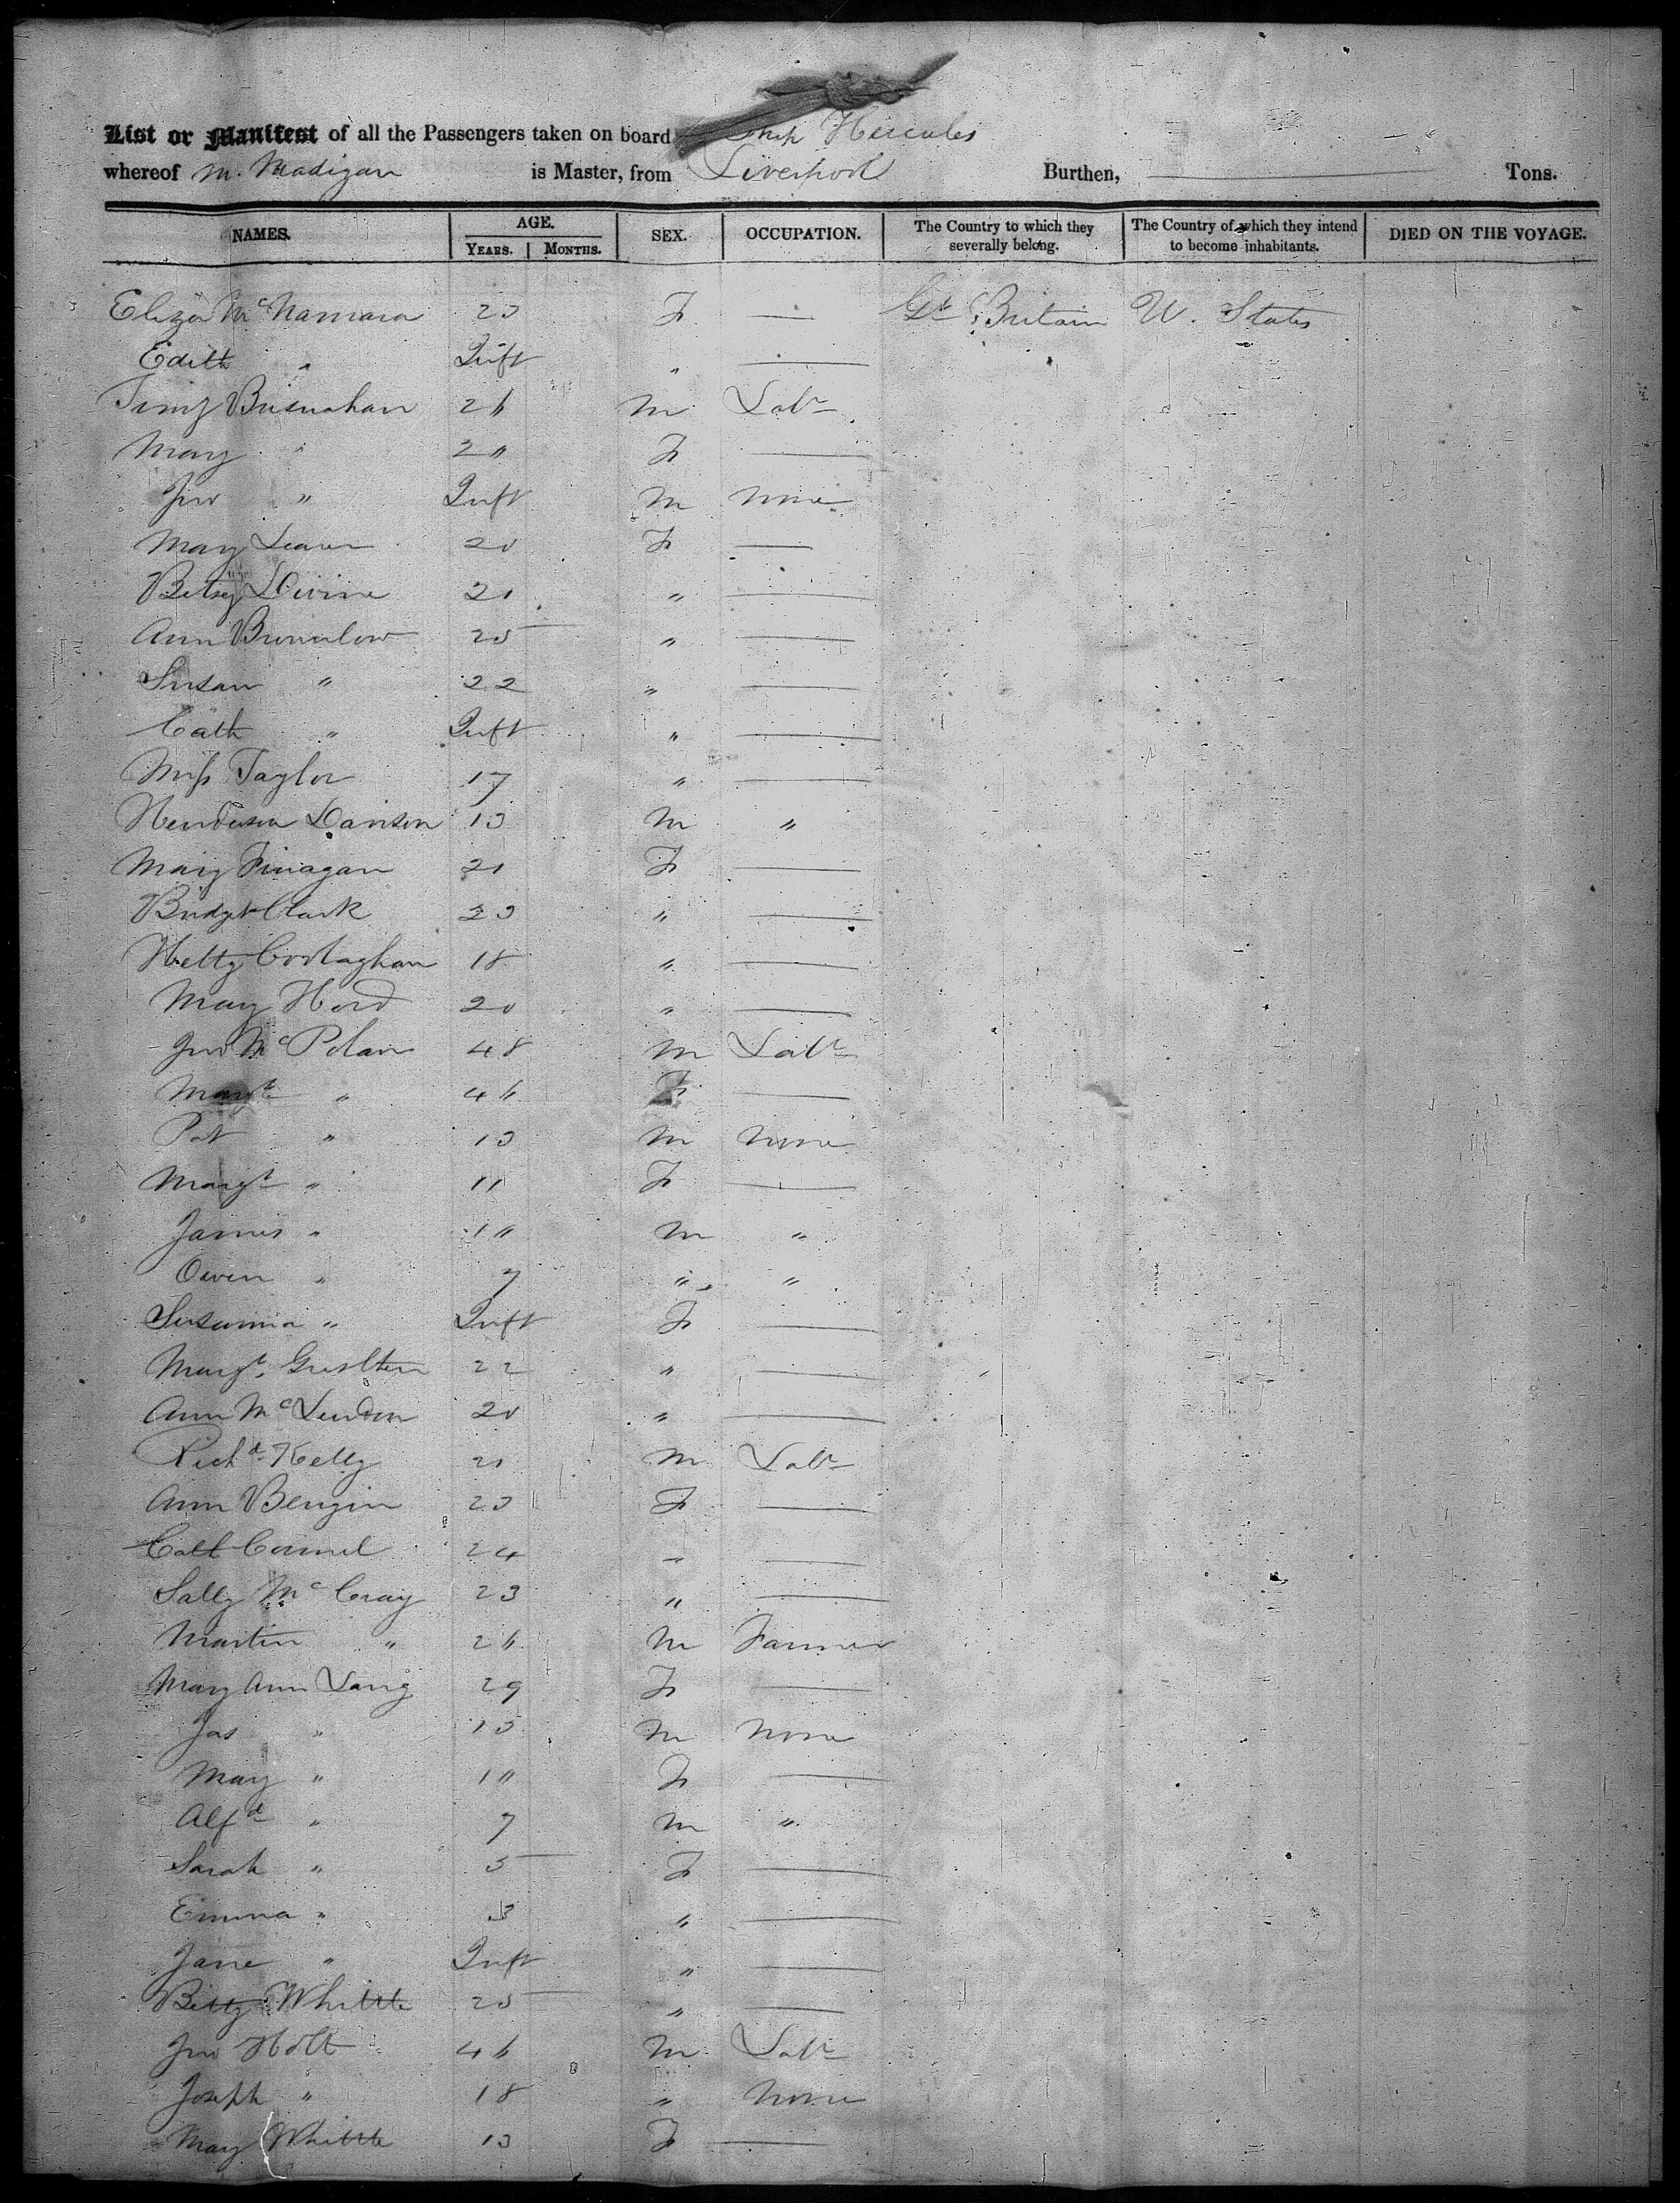 List or Manifest of all the Passengers taken on board Ship Hercules
whereof M. Madigan is Master, from Liverpool Burthen, Tons.
NAMES. AGE. SEX. OCCUPATION. The Country to which they severally belong. The Country of which they intend to become inhabitants. DIED ON THE VOYAGE.
YEARS. MONTHS.
Eliza McNamara 23 F — Gt Britain U. States
Edith " Inft " —
Timy Brisnahan 26 M Labr
Mary " 20 F —
Jno " Inft M None
Mary Leaven 20 F —
Betsy Divine 21 " —
Ann Brownlow 25 " —
Susan " 22 " —
Cath " Inft " —
Miss Taylor 17 " —
Henderson Davison 13 M "
Mary Finagan 21 F —
Bridget Clark 23 " —
Hetty Coolaghan 18 " —
Mary Hord 20 " —
Jno McPolan 48 M Labr
Margt " 46 F —
Pat " 13 M None
Margt " 11 F —
James " 10 M "
Owen " 7 " "
Susanna " Inft F —
Margt 22 " —
Ann McLendon 20 " —
Richd Kelly 21 M Labr
Ann Bengin 23 F —
Cath Connel 24 " —
Sally McCray 23 " —
Martin " 26 M Farmer
Mary Ann Lang 29 F —
Jas " 13 M None
Mary " 10 F —
Alfd " 7 M "
Sarah " 5 F —
Emma " 3 " —
Jane " Inft " —
Betty Whittle 25 " —
Jno Holt 46 M Labr
Joseph " 18 " None
Mary Whittle 13 F —